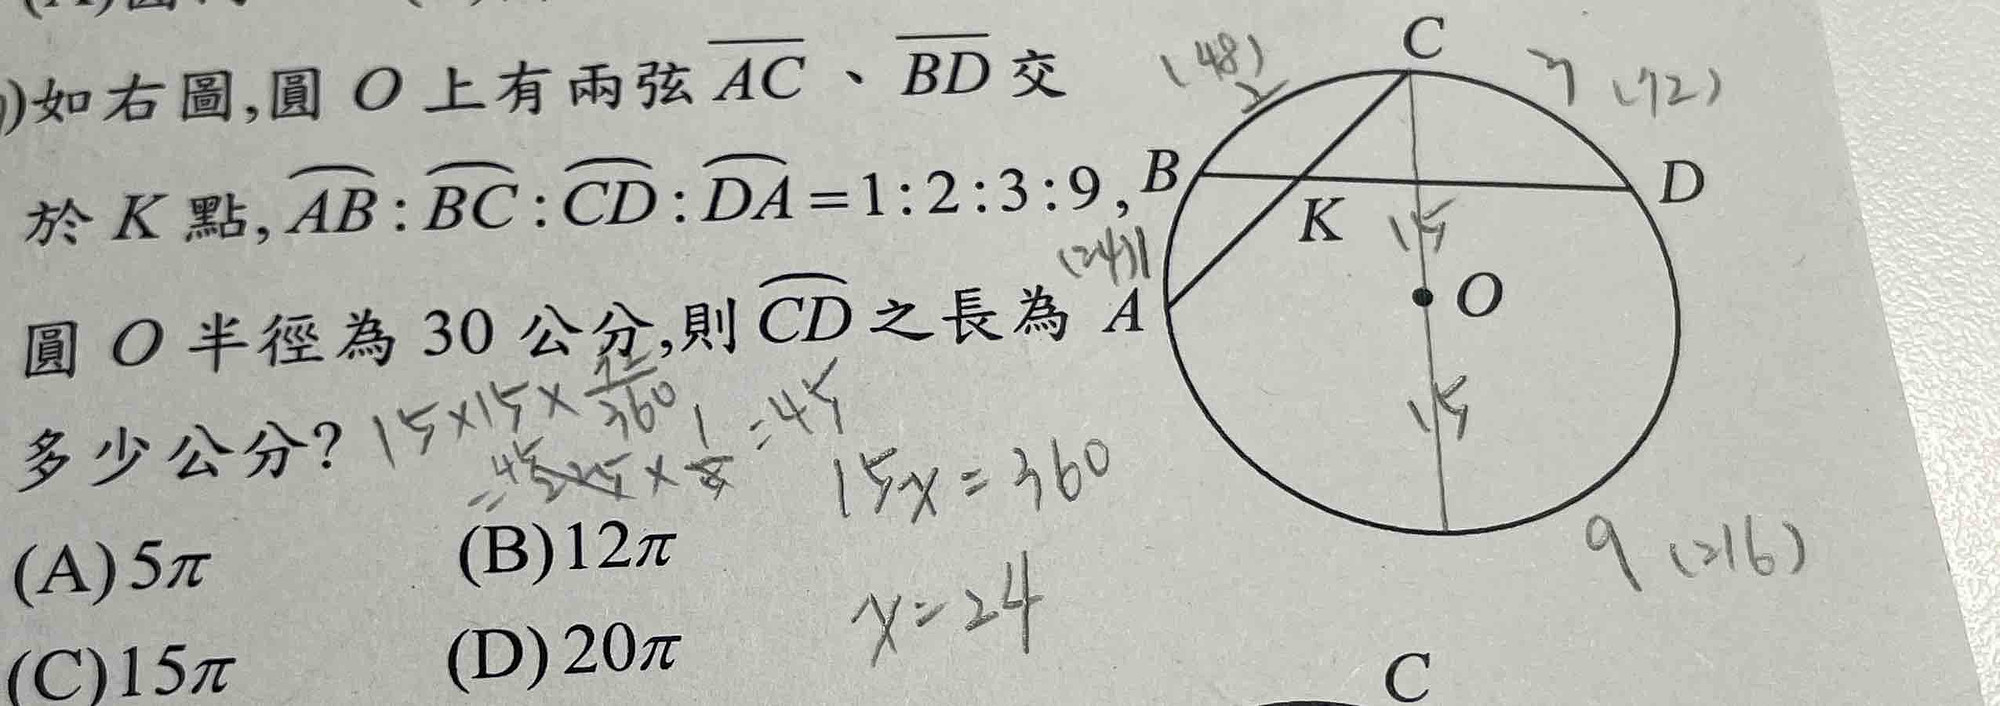 )如右圖,圓 O 上有兩弦 AC、BD 交
於 K 點, AB:BC:CD:DA=1:2:3:9,
圓 O 半徑為 30 公分,則 CD 之長為
多少公分?
15×15×72/360
=45
×1/8
15x=360
x=24
(A)5π
(B)12π
(C)15π
(D)20π
C
(48)
2
(72)
B
D
K
15
(24)1
A
O
15
9 (216)
C